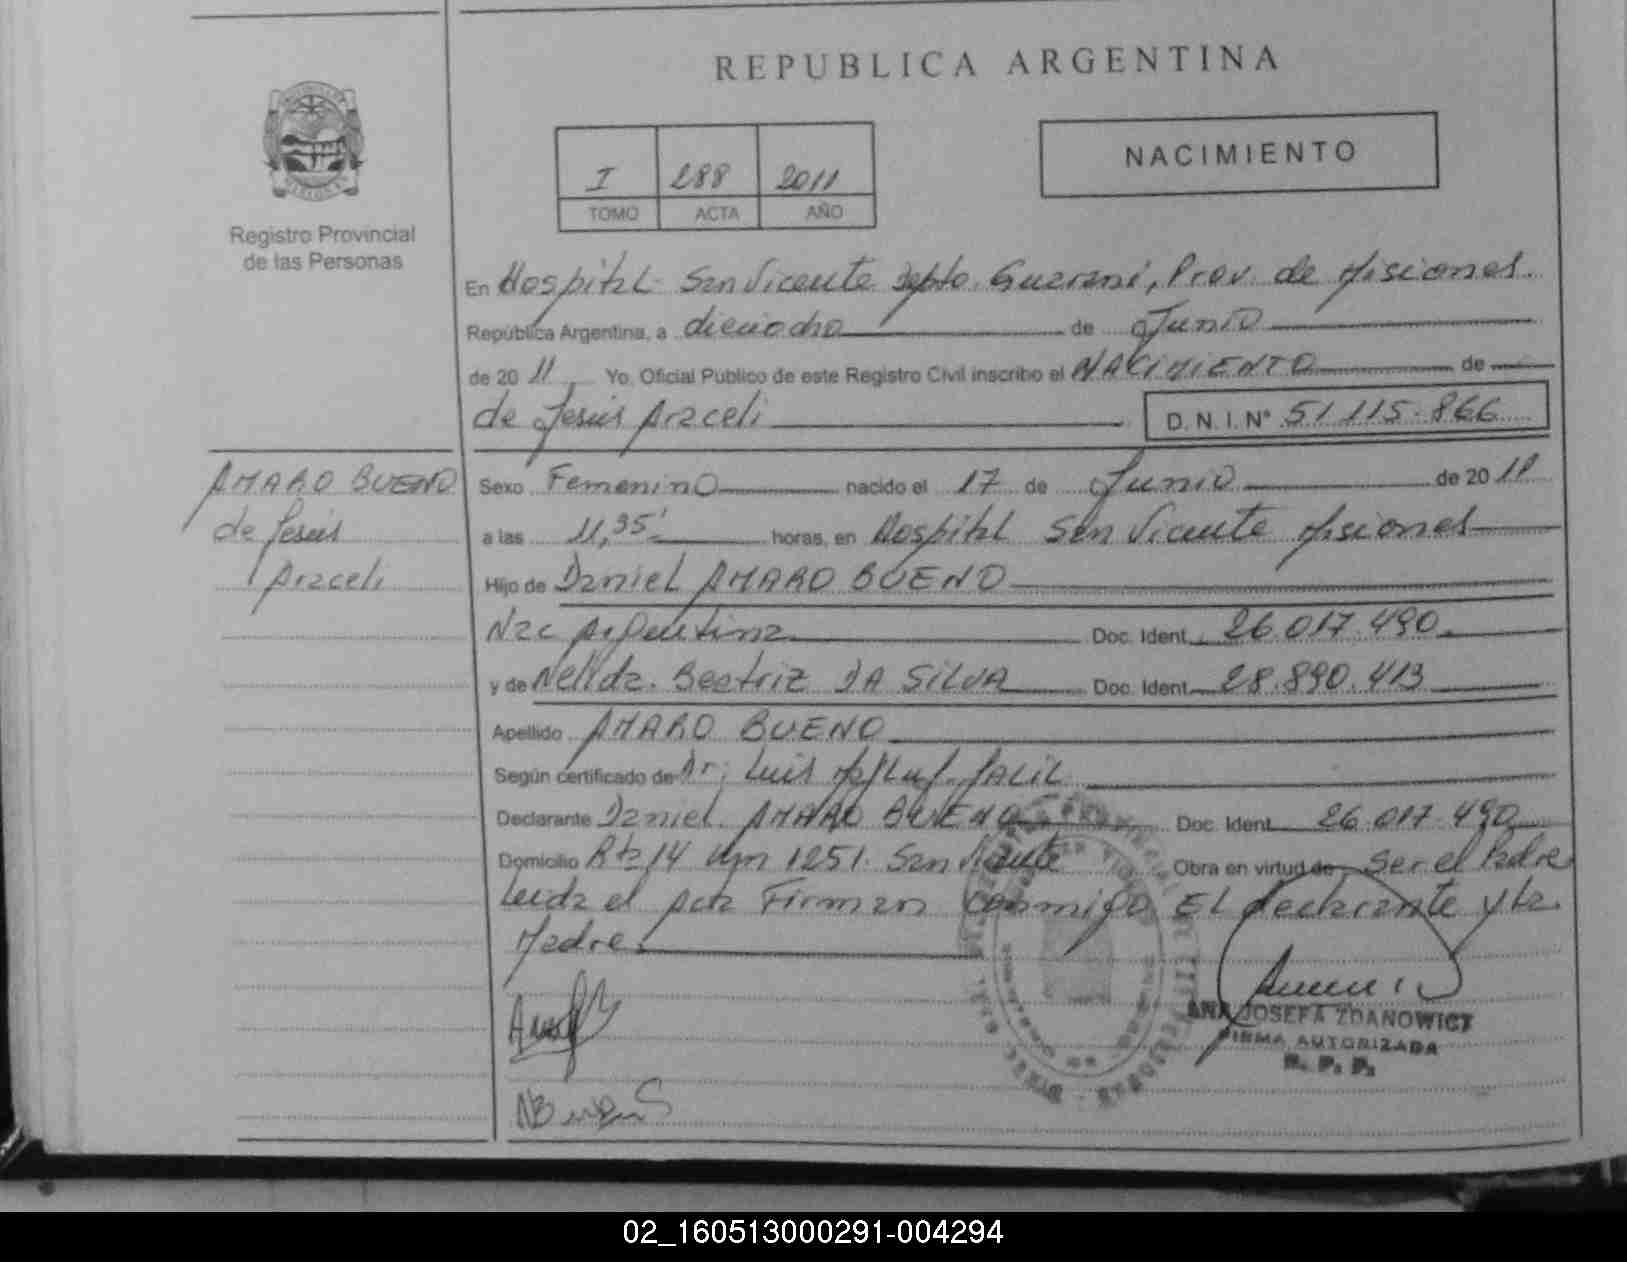 REPUBLICA ARGENTINA
NACIMIENTO
I 288 2011
TOMO ACTA AÑO
Registro Provincial
de las Personas
En Hospital San Vicente Depto. Guarani, Prov. de Misiones.
República Argentina, a dieciocho de Junio
de 2011, Yo, Oficial Publico de este Registro Civil inscribo el NACIMIENTO de
de Jesús Araceli D. N. I. N° 51.115.866
AMARO BUENO
de Jesús
Araceli
Sexo Femenino nacido el 17 de Junio de 2011
a las 11,35' horas, en Hospital San Vicente Misiones
Hijo de Daniel AMARO BUENO
Nac Argentina Doc. Ident. 26.017.490.
y de Nelida. Beatriz DA SILVA Doc. Ident. 28.890.413
Apellido AMARO BUENO
Según certificado de Dr; Luis JALIL
Declarante Daniel. AMARO BUENO Doc. Ident. 26.017.490
Domicilio Rta 14 Km 1251. San Vicente Obra en virtud de Ser el Padre
Leida el Acta Firman conmigo EL declarante y la.
Madre
ANA JOSEFA ZDANOWICZ
FIRMA AUTORIZADA
R. P. P.
02_160513000291-004294